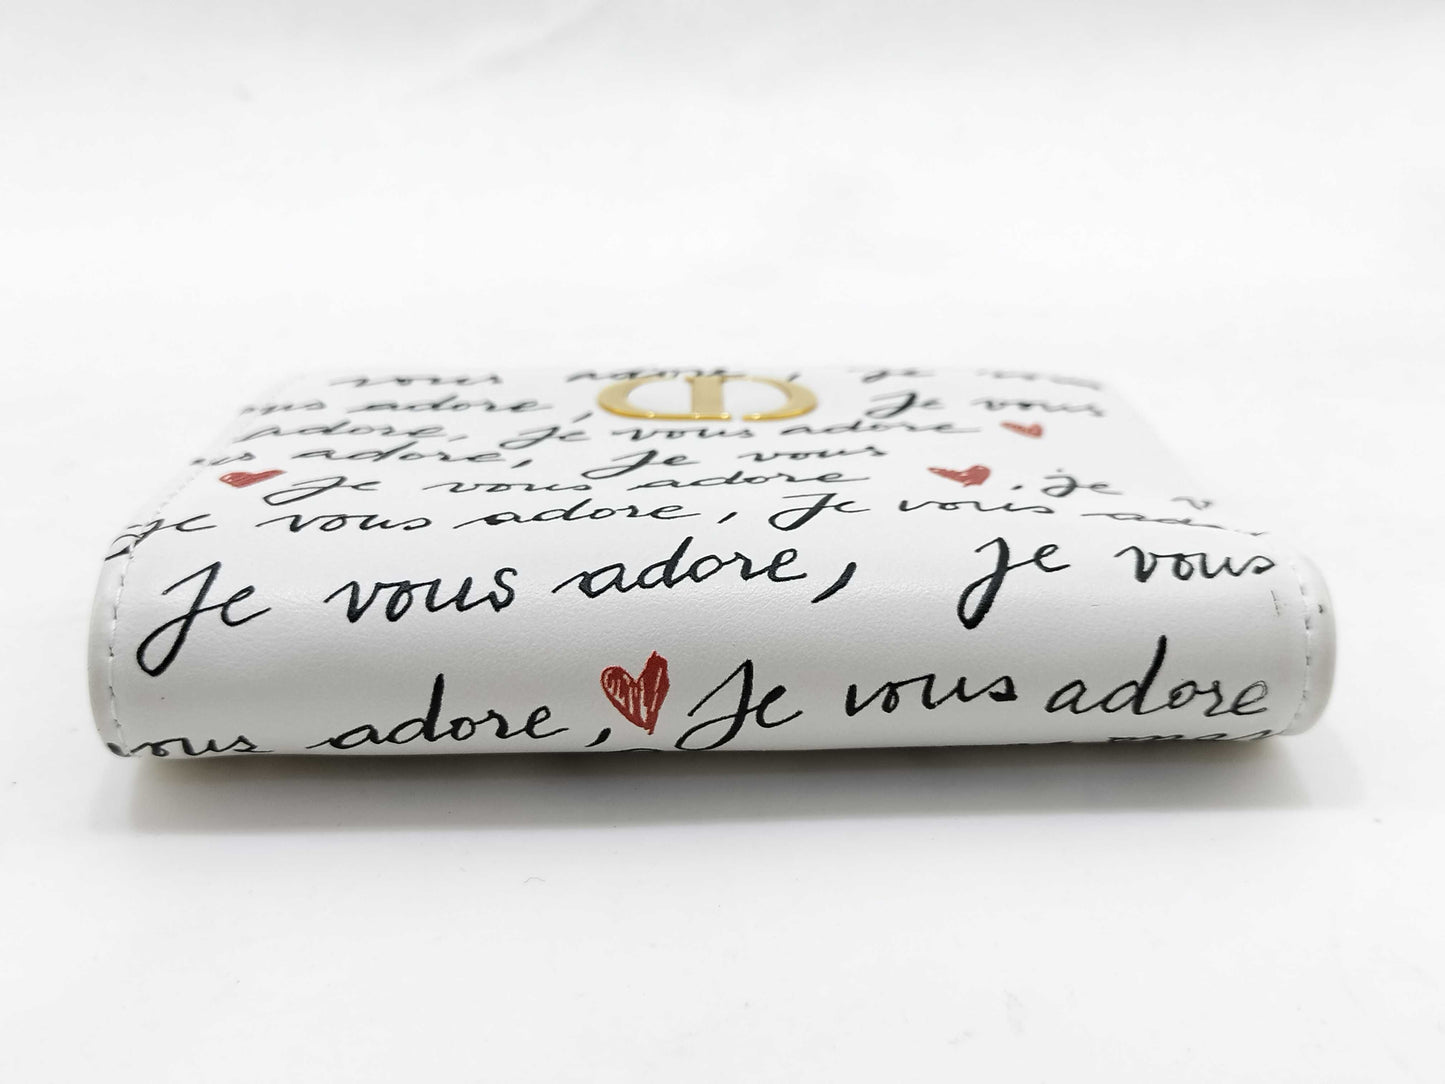 vous adore, je vous
vous adore, Je vous
adore, Je vous adore
adore, Je vous
Je vous adore . je v
je vous adore, Je vous
Je vous adore, je vous
vous adore, Je vous adore